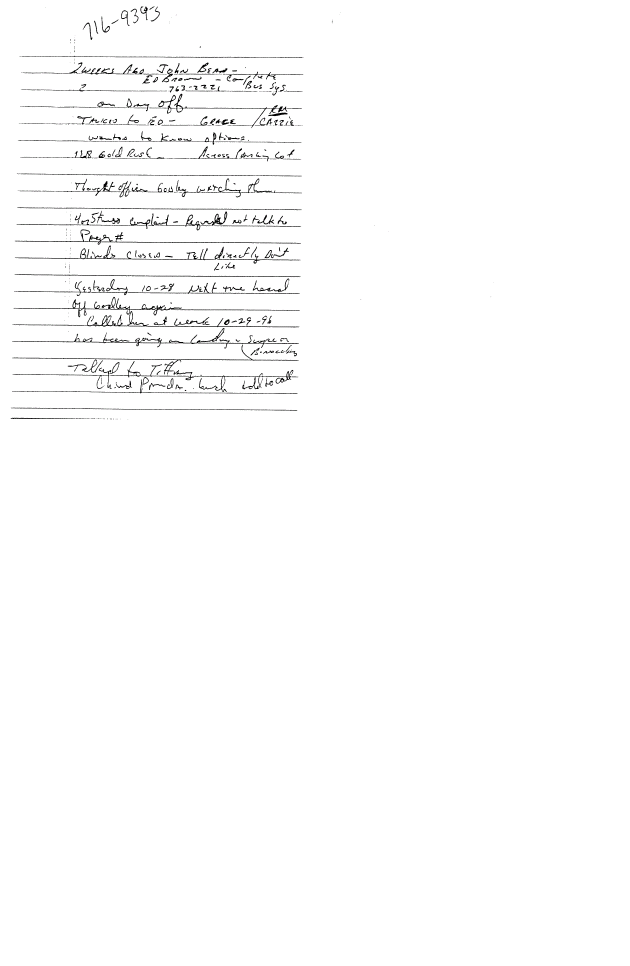 716-9393
2 WEEKS AGO John BEAN -
ED Brown - Complete
2 763-2221 Bus Sys
on Day off.
TALKED to ED - GRACE / CAZZIE
wanted to know options.
Gold Rush - Across Parking Lot
Thought officer watching them.
complaint - Requested not talk to
Pager #
Blinds closed - Tell directly Don't
Like
Yesterday 10-28 Next time heard
Off again
Called her at work 10-29-96
has been going on
Binoculars
Talked to Tiffany
told to call